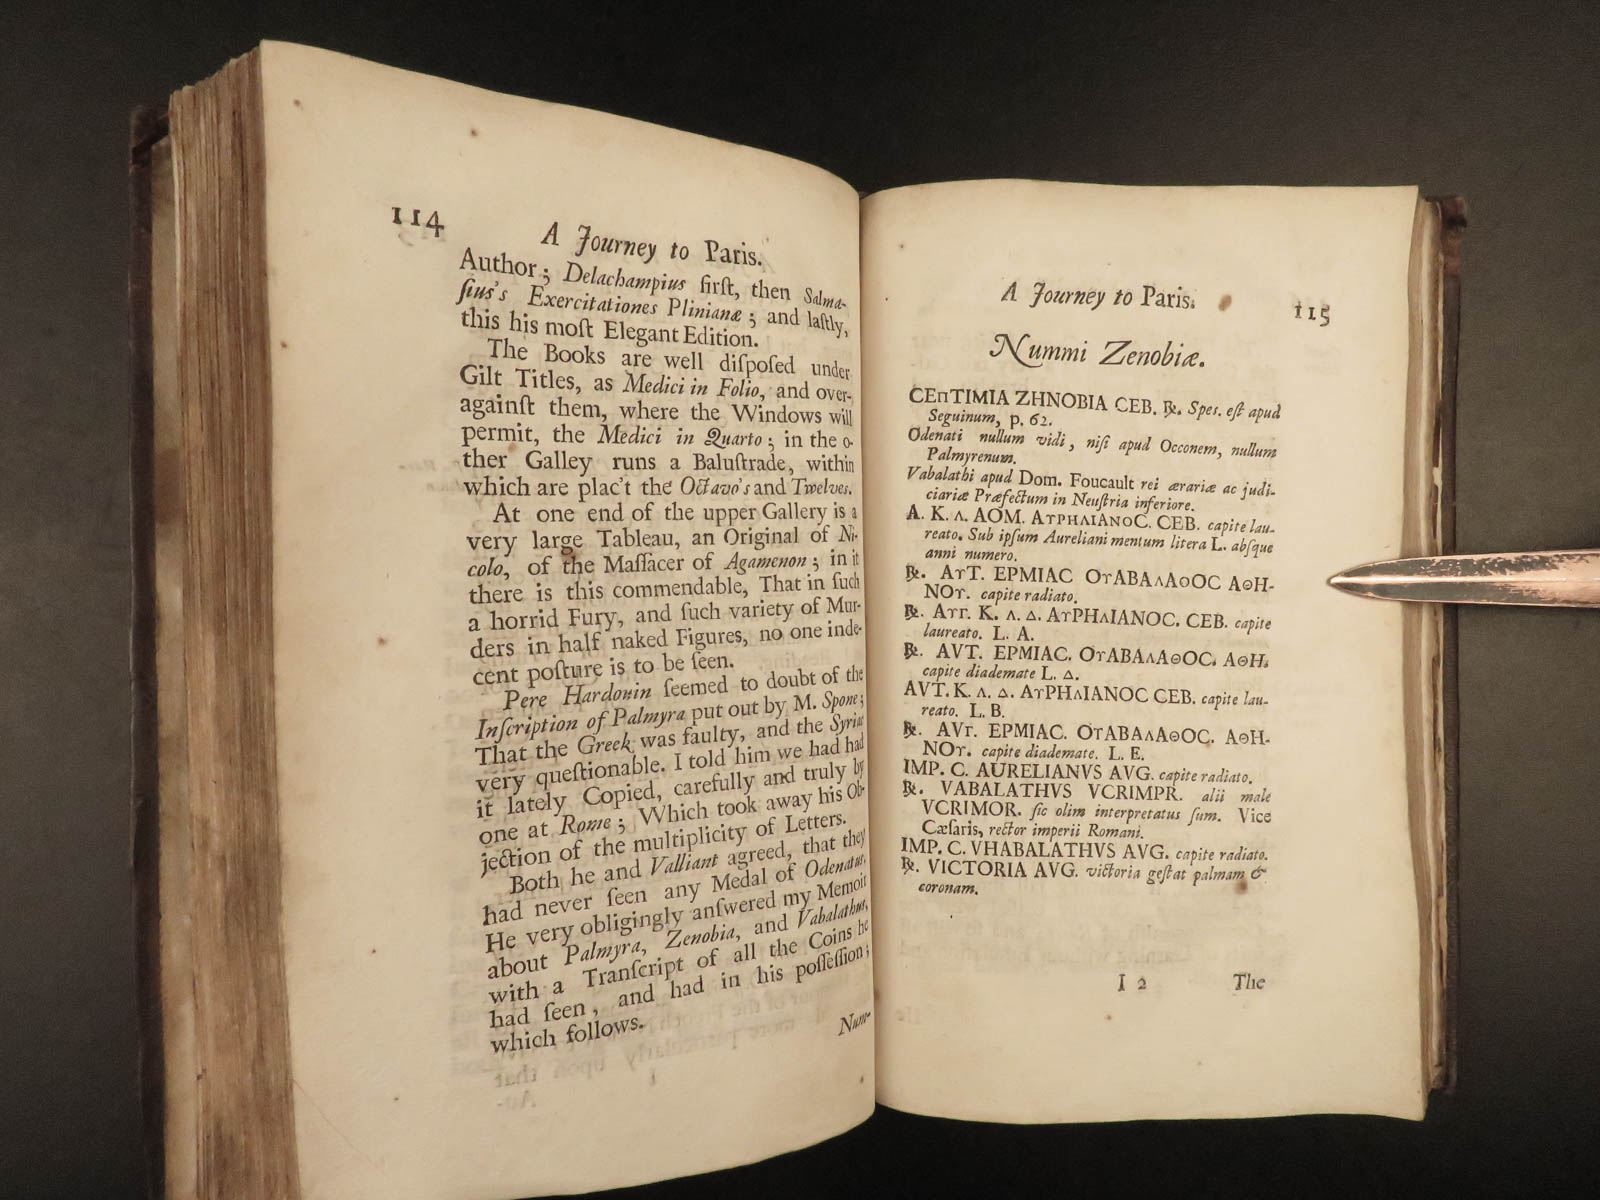 114
A Journey to Paris.
Author; Delachampius firſt, then Salma-
ſius's Exercitationes Plinianæ; and laſtly,
this his moſt Elegant Edition.
The Books are well diſpoſed under
Gilt Titles, as Medici in Folio, and over-
againſt them, where the Windows will
permit, the Medici in Quarto; in the o-
ther Galley runs a Baluſtrade, within
which are plac't the Octavo's and Twelves.
At one end of the upper Gallery is a
very large Tableau, an Original of Ni-
colo, of the Maſſacer of Agamenon; in it
there is this commendable, That in ſuch
a horrid Fury, and ſuch variety of Mur-
ders in half naked Figures, no one inde-
cent poſture is to be ſeen.
Pere Hardouin ſeemed to doubt of the
Inſcription of Palmyra put out by M. Spone;
That the Greek was faulty, and the Syriac
very queſtionable. I told him we had had
it lately Copied, carefully and truly by
one at Rome; Which took away his Ob-
jection of the multiplicity of Letters.
Both he and Valliant agreed, that they
had never ſeen any Medal of Odenatus.
He very obligingly anſwered my Memoir
about Palmyra, Zenobia, and Vabalathus,
with a Tranſcript of all the Coins he
had ſeen, and had in his poſſeſſion;
which follows.
Num-
A Journey to Paris.
115
Nummi Zenobiæ.
CЄпTIMIA ZHNOBIA CEB. ℞. Spes. eſt apud
Seguinum, p. 62.
Odenati nullum vidi, niſi apud Occonem, nullum
Palmyrenum.
Vabalathi apud Dom. Foucault rei ærariæ ac judi-
ciariæ Præfectum in Neuſtria inferiore.
A. K. Λ. ΔOM. AΥPHΛIANOC. CEB. capite lau-
reato. Sub ipſum Aureliani mentum litera L. abſque
anni numero.
℞. AΥT. EPMIAC OΥABAΛAΘOC AΘH-
NOΥ. capite radiato.
℞. AΥΓ. K. Λ. Δ. AΥPHΛIANOC. CEB. capite
laureato. L. A.
℞. AVT. EPMIAC. OΥABAΛAΘOC. AΘH.
capite diademate L. Δ.
AVT. K. Λ. Δ. AΥPHΛIANOC CEB. capite lau-
reato. L. B.
℞. AVΓ. EPMIAC. OΥABAΛAΘOC. AΘH-
NOΥ. capite diademate. L. E.
IMP. C. AURELIANVS AVG. capite radiato.
℞. VABALATHVS VCRIMPR. alii male
VCRIMOR. ſic olim interpretatus ſum. Vice
Cæſaris, rector imperii Romani.
IMP. C. VHABALATHVS AVG. capite radiato.
℞. VICTORIA AVG. victoria geſtat palmam &
coronam.
I 2
The